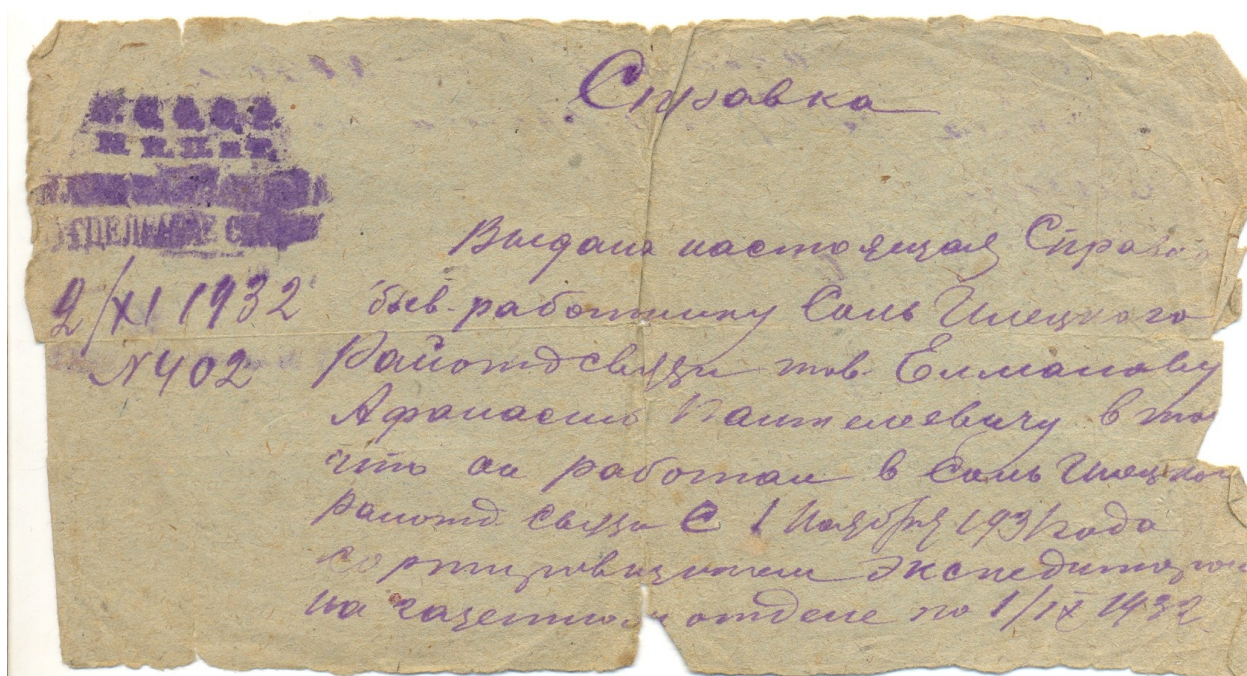 Справка
Р. С. Ф. С. Р.
Н. К. П. и Т.
ОТДЕЛЕНИЕ СВЯЗИ
2/XI 1932
N 402
Выдана настоящая Справка
быв. работнику Соль Илецкого
Районд связи тов. Елманову
Афанасию Пантелеевичу в то
что он работал в Соль Илецком
районд связи С 1 Ноября 1931 года
сортировщиком экспедитором
на газетном отделе по 1/IX 1932